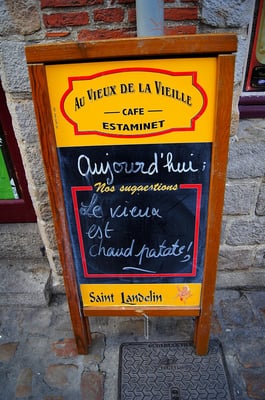 Au Vieux de la Vieille
CAFE
ESTAMINET
Aujourd'hui :
Nos suggestions
Le vieux
est
chaud patate !
Saint Landelin